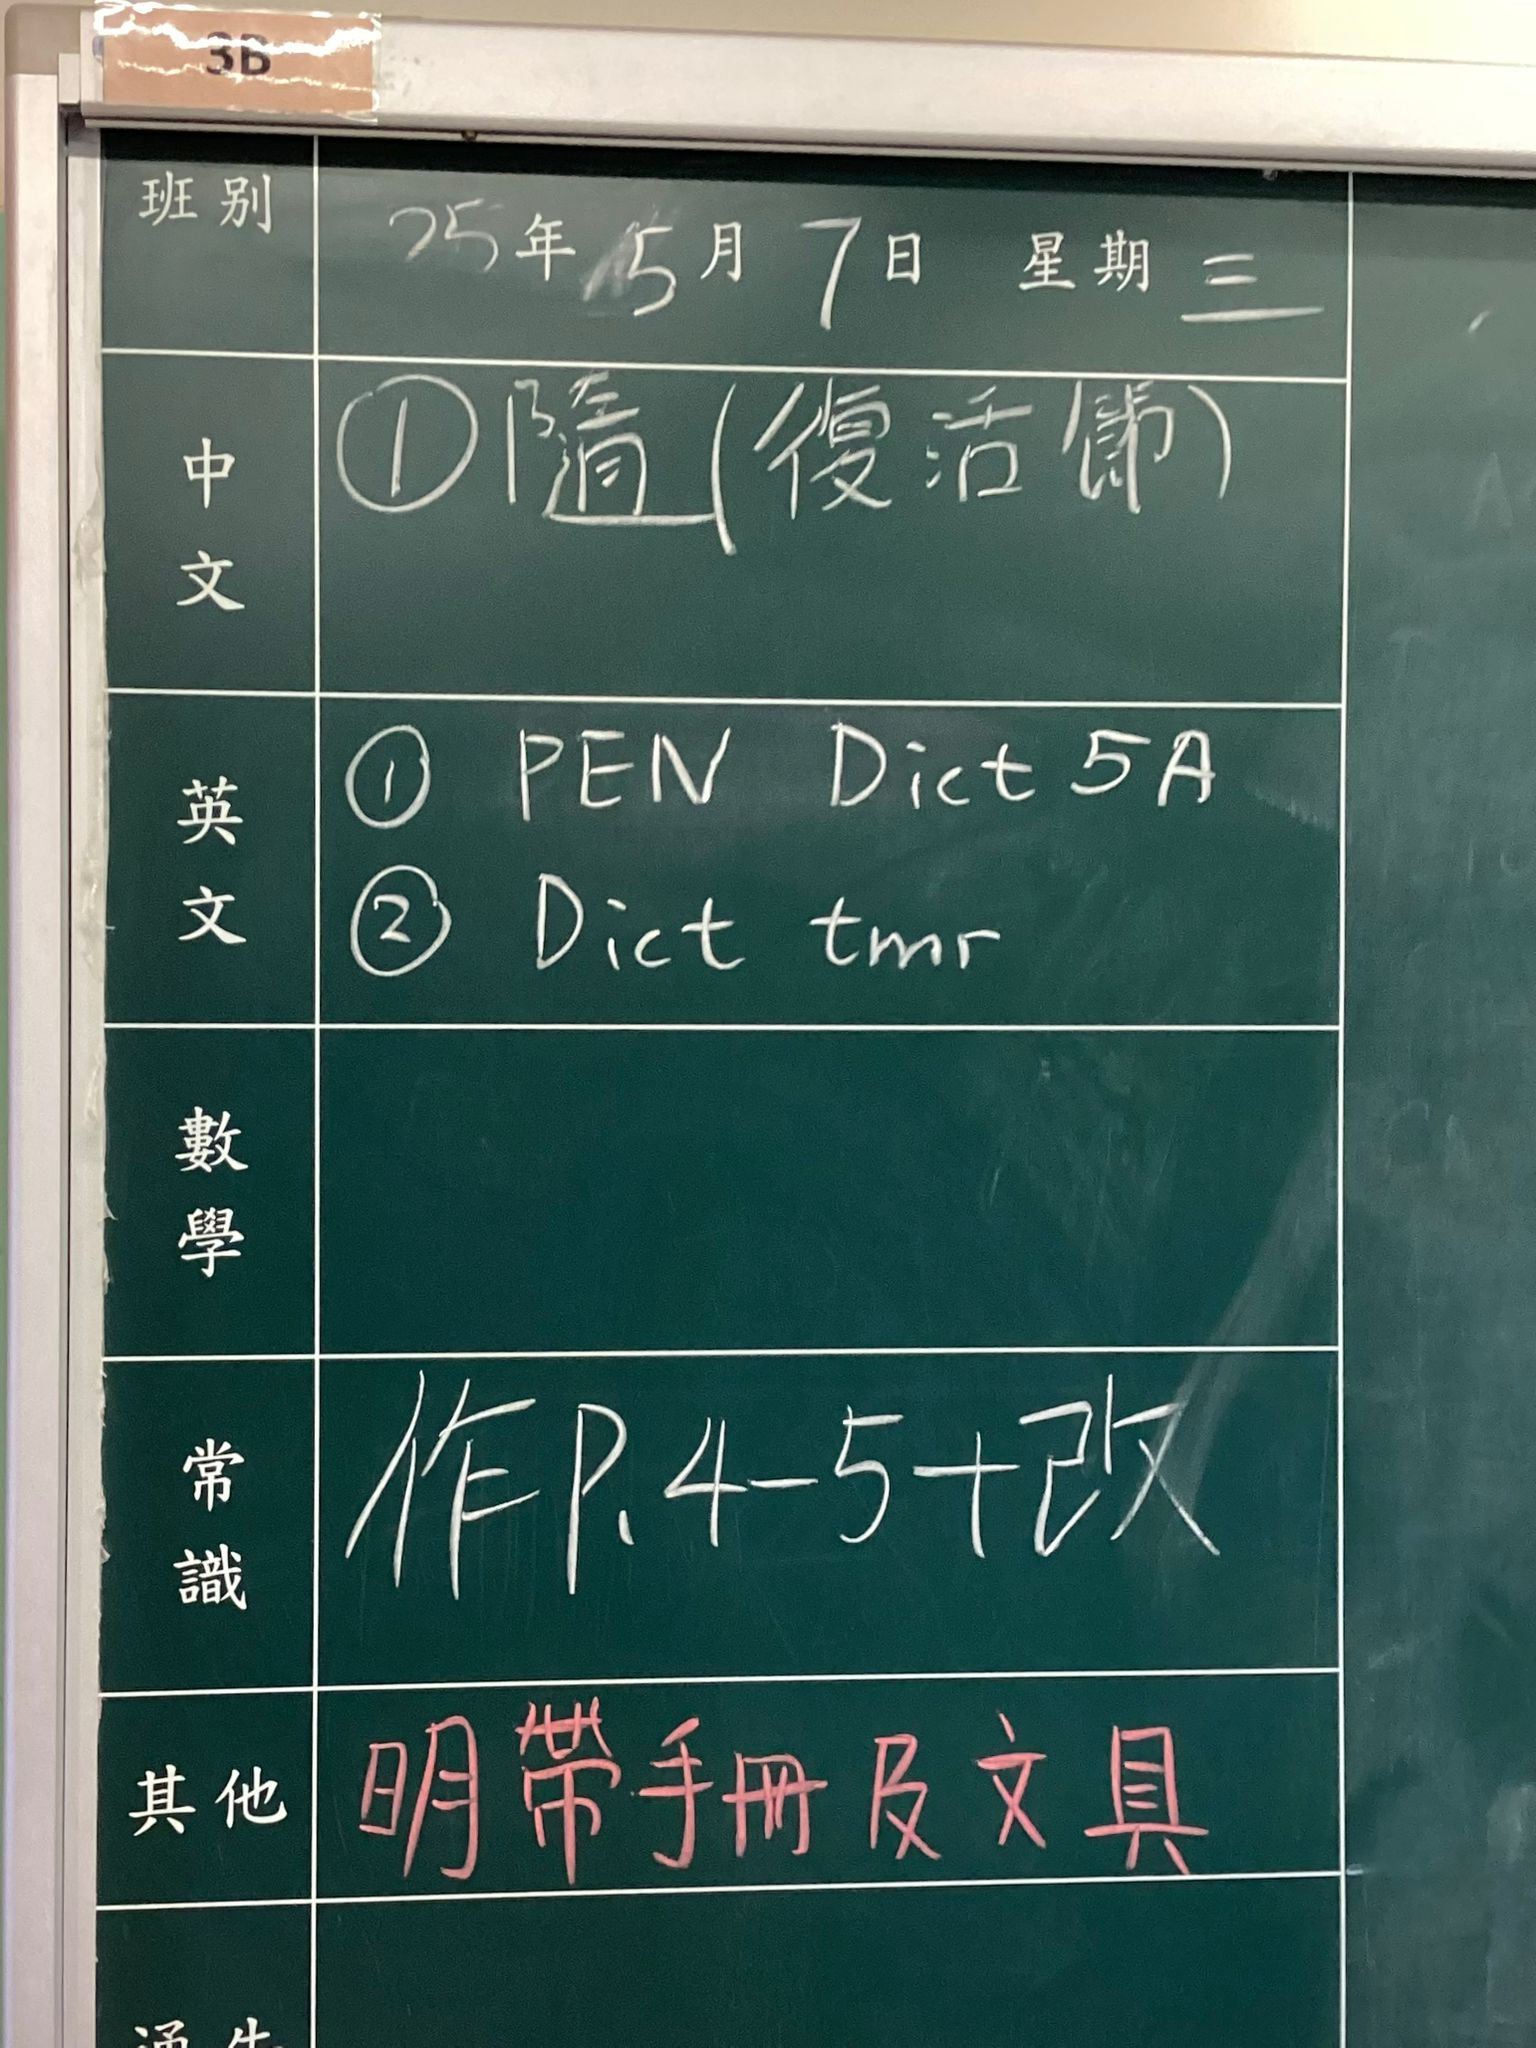 3B
班別
25年 5月 7日 星期三
中文
①隨(復活節)
英文
① PEN Dict 5A
② Dict tmr
數學
常識
作P.4-5+改
其他
明帶手冊及文具